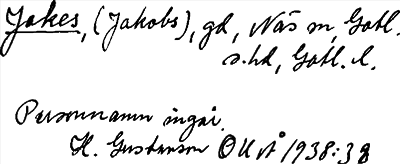 Jakes, (Jakobs), gd, Näs sn, Gotl.
s. hd, Gotl. l.
Personnamn ingår.
H. Gustavson OUÅ 1938: 38